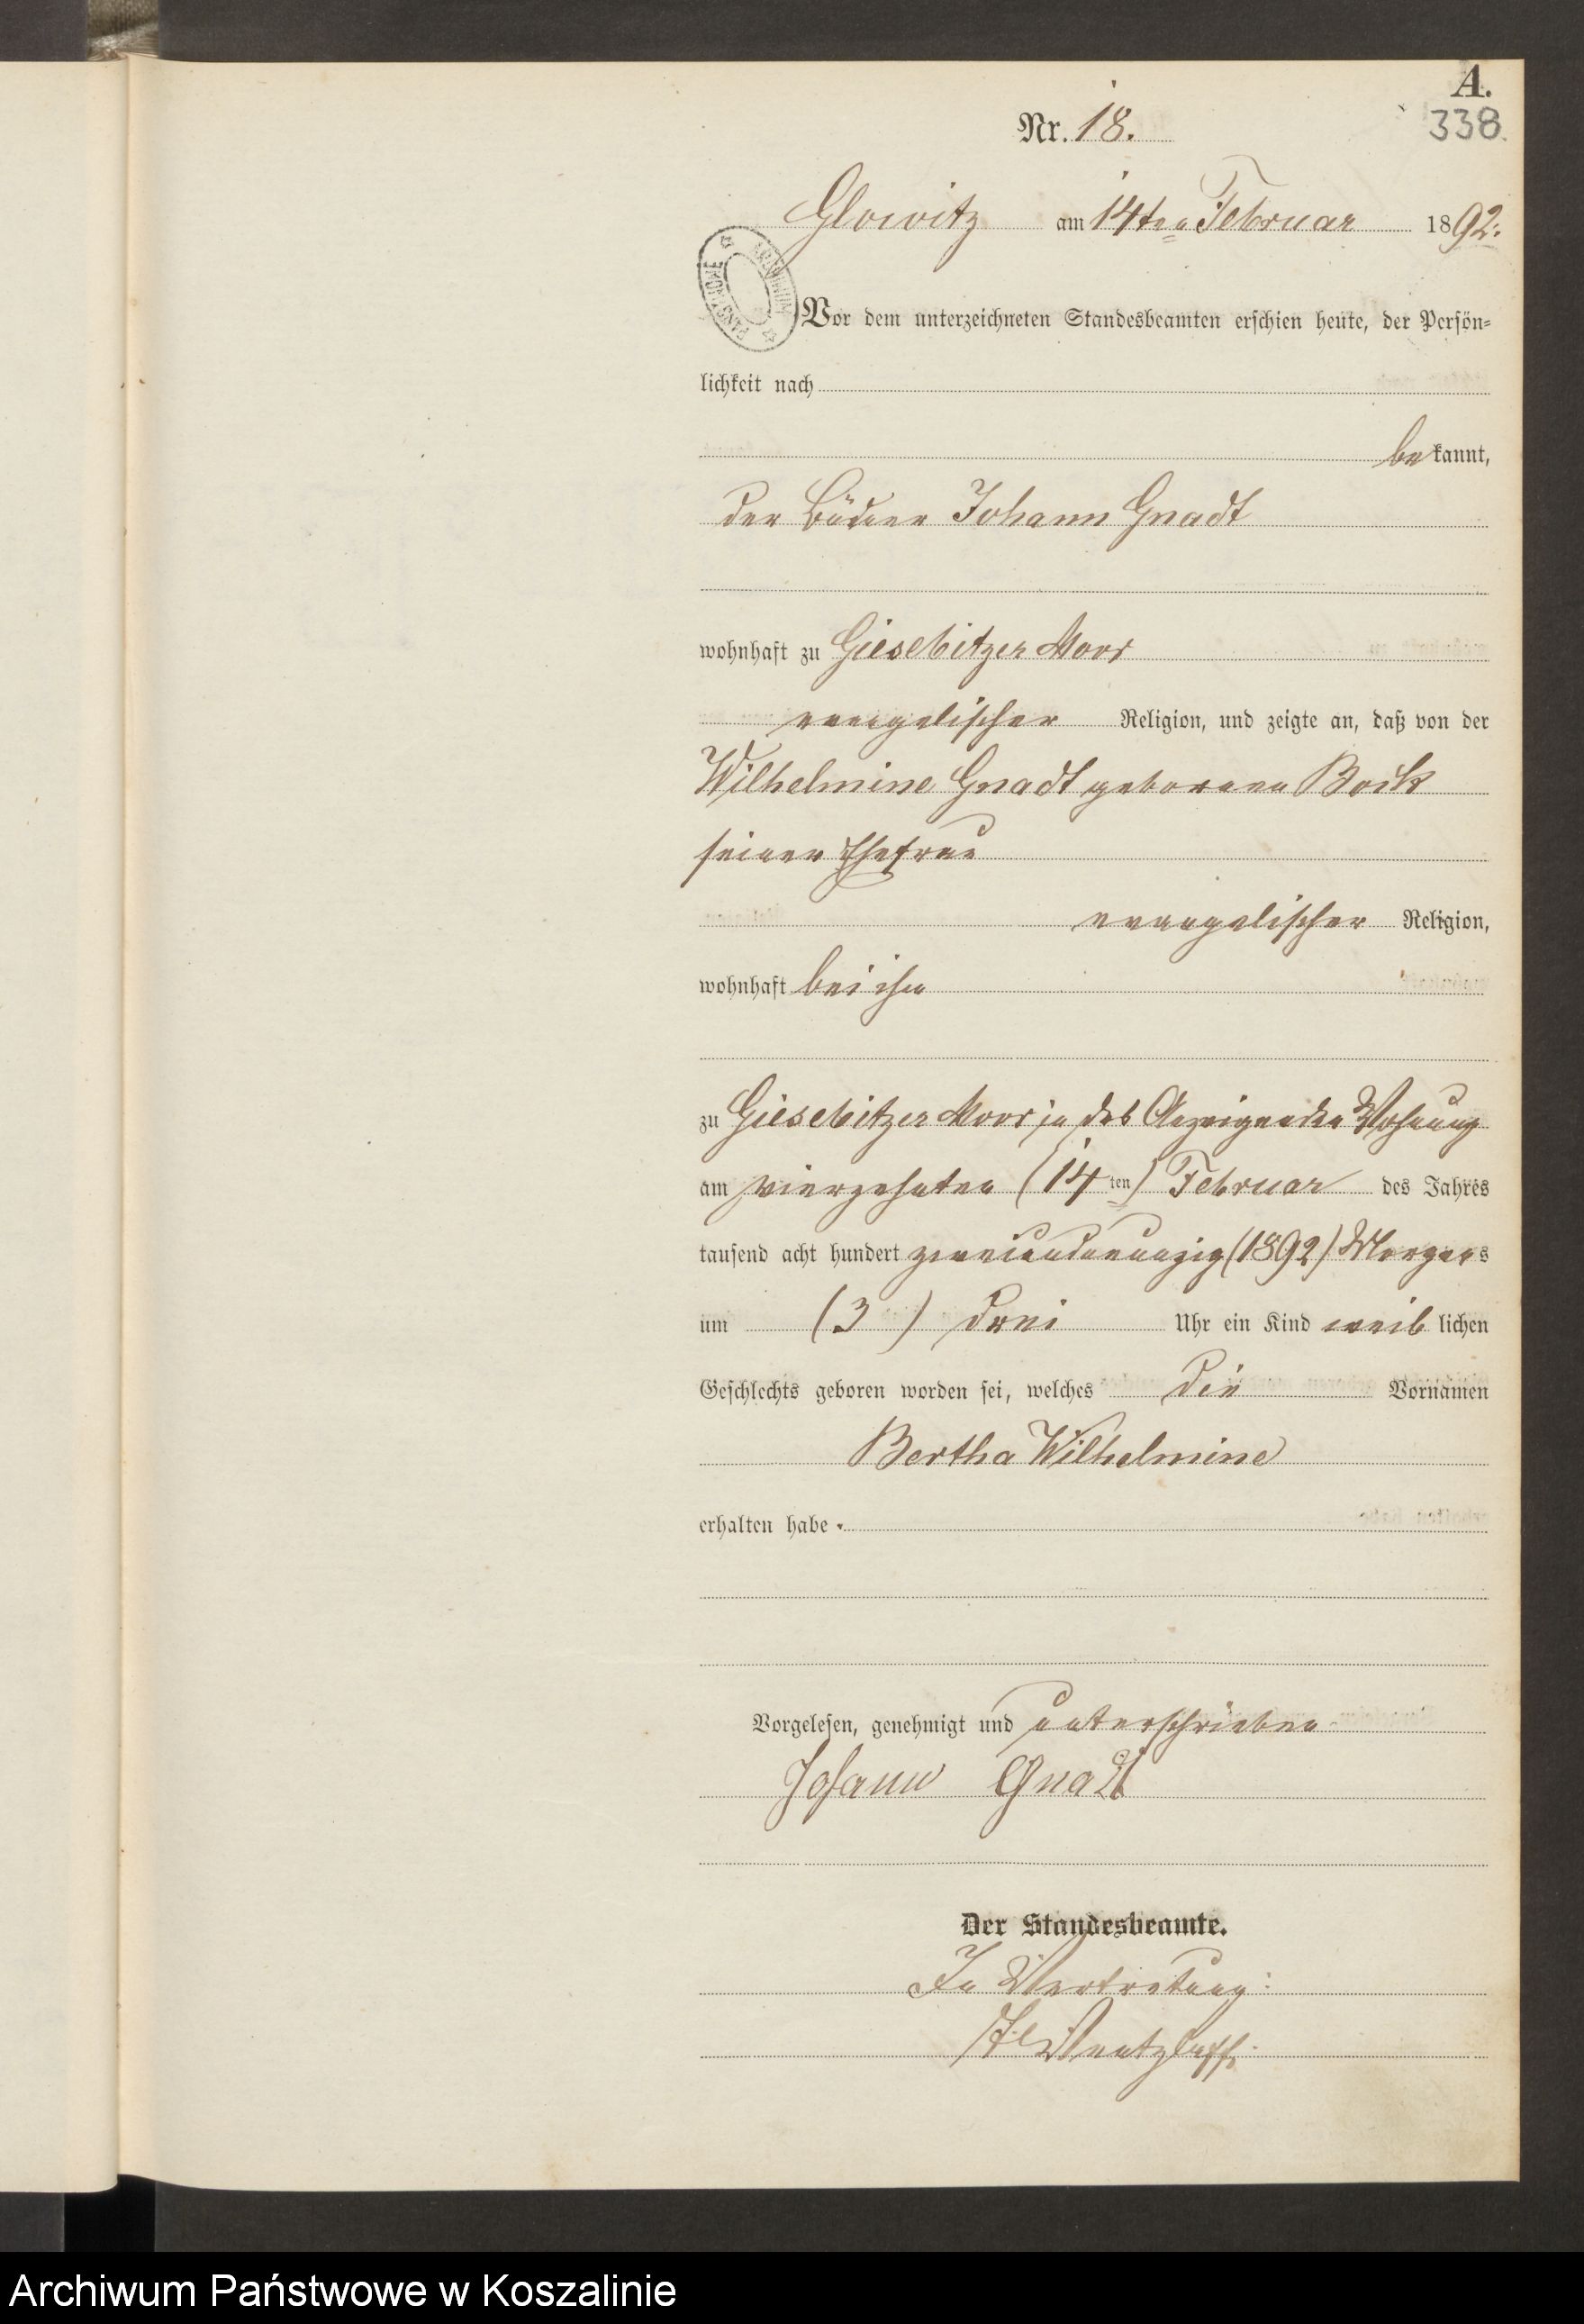 A.
338
Nr. 18.
Glowitz am 14ten Februar 1892.
ARCHIWUM PAŃSTWOWE
Vor dem unterzeichneten Standesbeamten erschien heute, der Persön=
lichkeit nach
bekannt,
der Büdner Johann Gnadt
wohnhaft zu Giesebitzer Moor
evangelischer Religion, und zeigte an, daß von der
Wilhelmine Gnadt geborenen Bock
seiner Ehefrau
evangelischer Religion,
wohnhaft bei ihm
zu Giesebitzer Moor in des Anzeigenden Wohnung
am vierzehnten (14ten) Februar des Jahres
tausend acht hundert zweiundneunzig (1892) Morgens
um (3) drei Uhr ein Kind weiblichen
Geschlechts geboren worden sei, welches die Vornamen
Bertha Wilhelmine
erhalten habe.
Vorgelesen, genehmigt und unterschrieben
Johann Gnadt
Der Standesbeamte.
In Vertretung:
Ventzlaff.
Archiwum Państwowe w Koszalinie